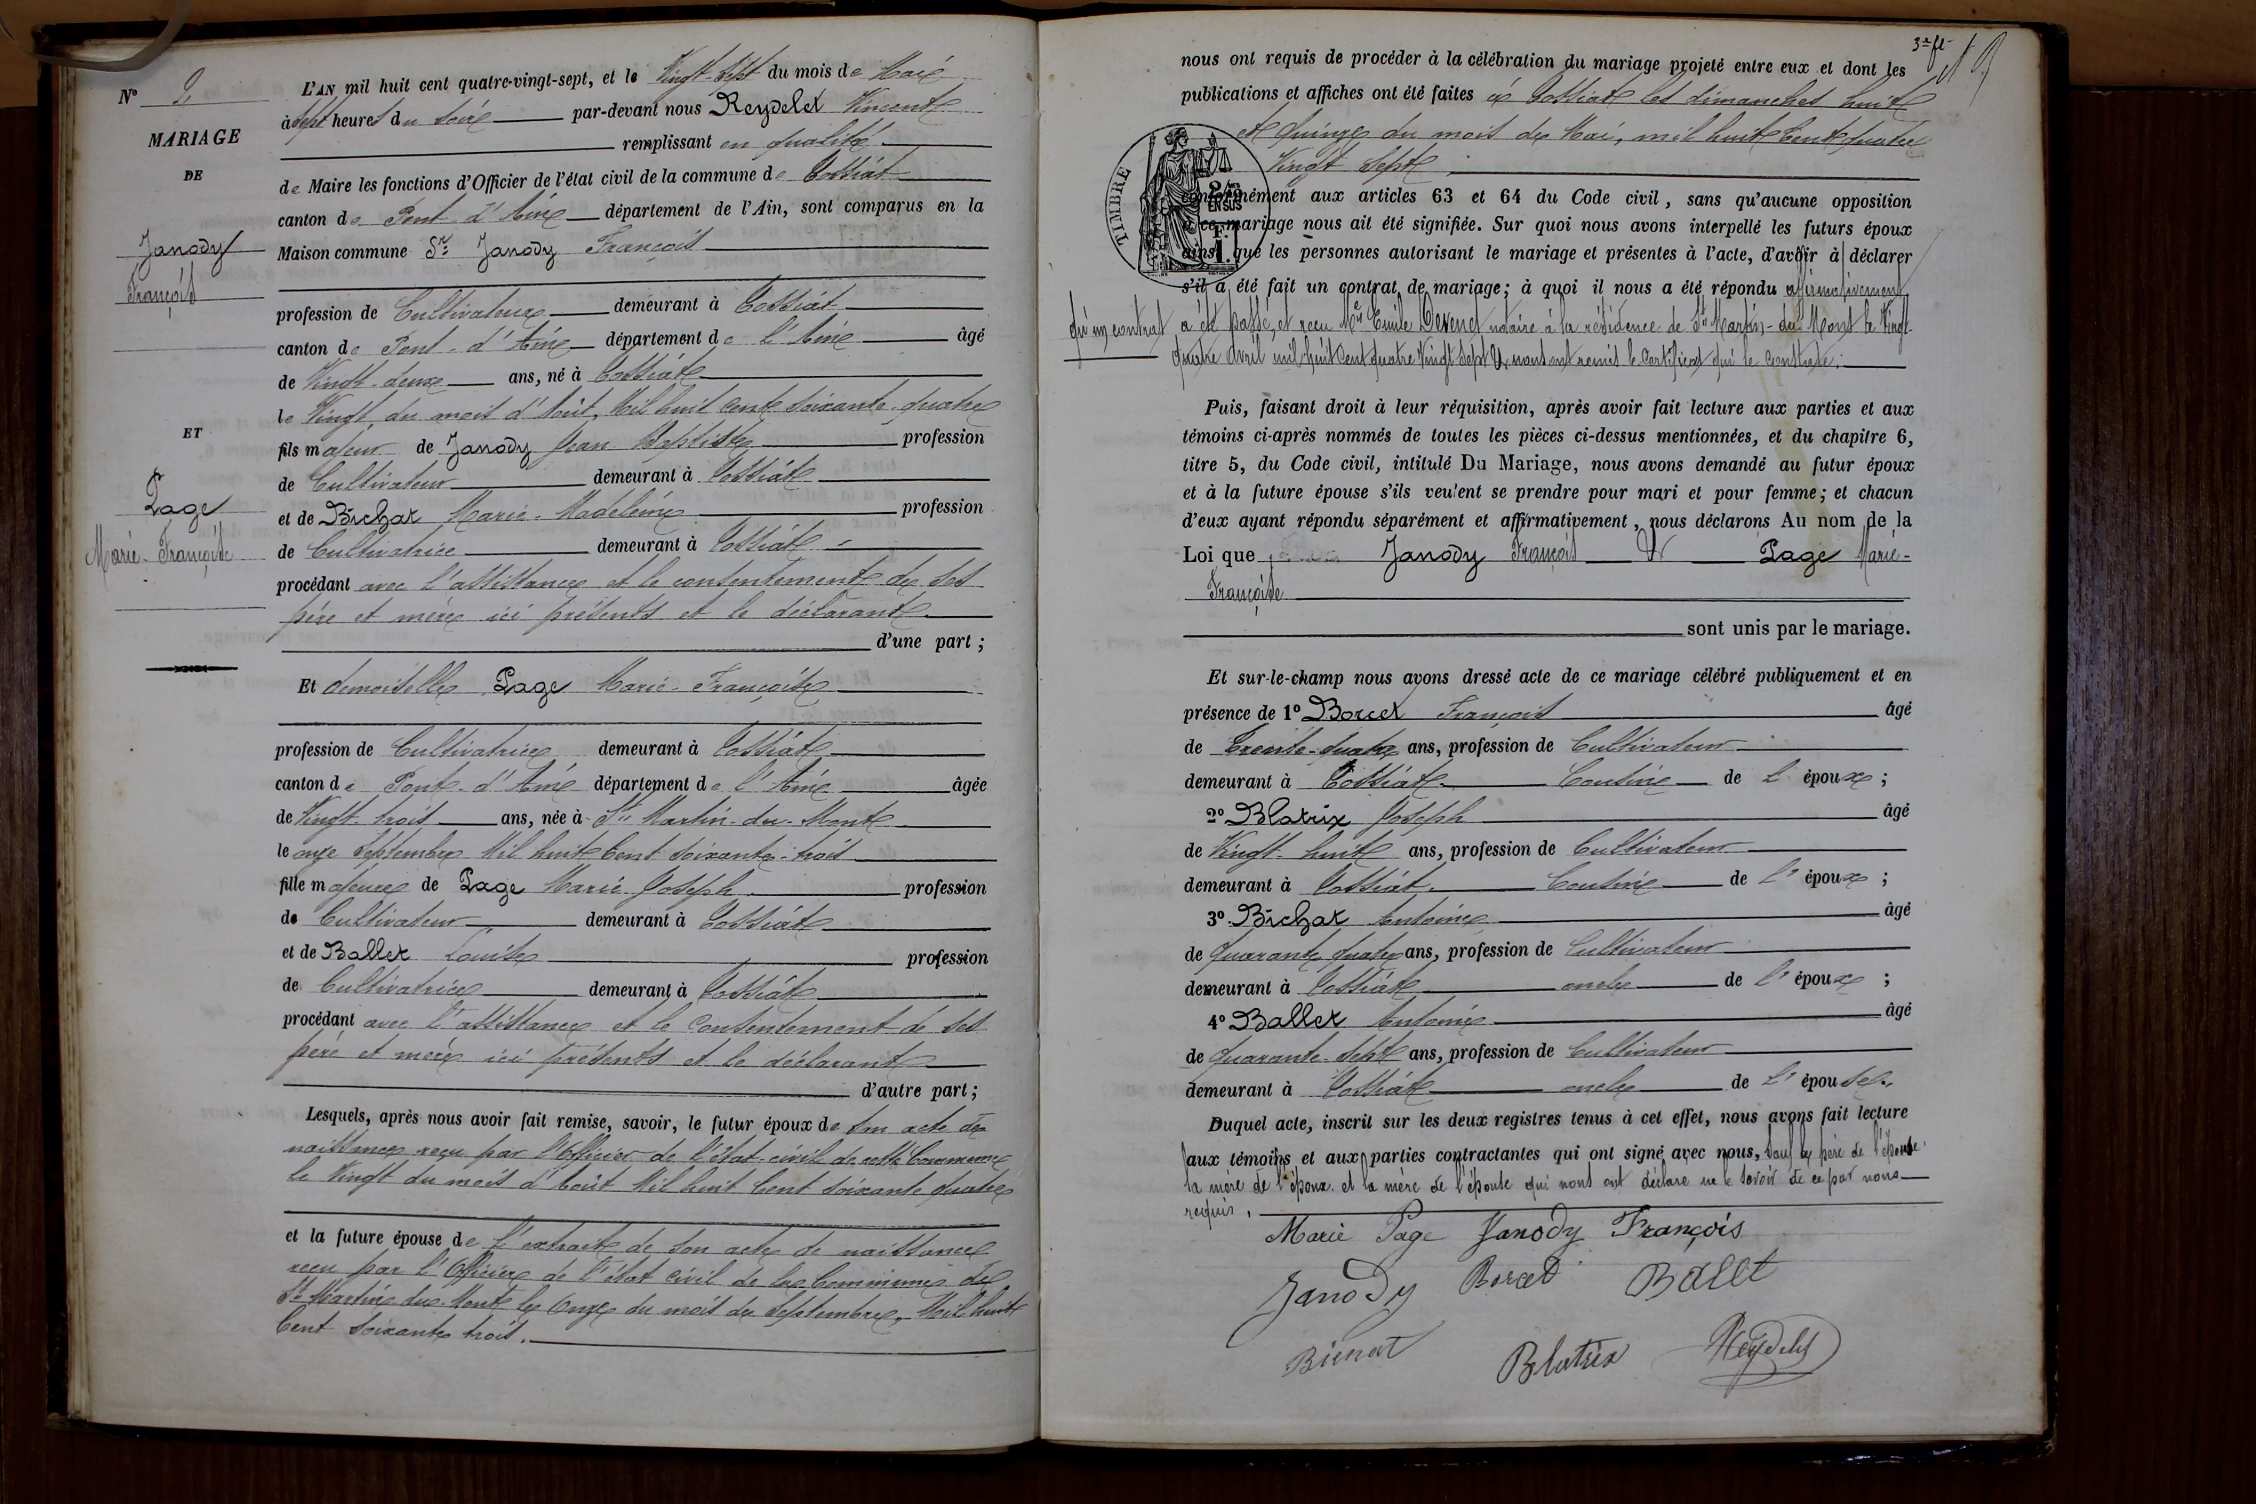 N° 2
MARIAGE
DE
Janody
François
ET
Page
Marie-Françoise
L'AN mil huit cent quatre-vingt-sept, et le Vingt-Sept du mois de Mai
à sept heures du soir par-devant nous Reydelet Vincent
remplissant en qualité
de Maire les fonctions d'Officier de l'état civil de la commune de Tossiat
canton de Pont-d'Ain département de l'Ain, sont comparus en la
Maison commune Sr Janody François
profession de Cultivateur demeurant à Tossiat
canton de Pont-d'Ain département de l'Ain âgé
de Vingt-deux ans, né à Tossiat
le Vingt du mois d'Août, Mil huit cent soixante-quatre
fils majeur de Janody Jean Baptiste profession
de Cultivateur demeurant à Tossiat
et de Bichat Marie-Madeleine profession
de Cultivatrice demeurant à Tossiat
procédant avec l'assistance et le consentement de ses
père et mère ici présents et le déclarant
d'une part ;
Et demoiselle Page Marie-Françoise
profession de Cultivatrice demeurant à Tossiat
canton de Pont-d'Ain département de l'Ain âgée
de Vingt-trois ans, née à St Martin-du-Mont
le onze Septembre Mil huit Cent soixante-trois
fille majeure de Page Marie Joseph profession
de Cultivateur demeurant à Tossiat
et de Ballet Louise profession
de Cultivatrice demeurant à Tossiat
procédant avec l'assistance et le Consentement de ses
père et mère ici présents et le déclarant
d'autre part ;
Lesquels, après nous avoir fait remise, savoir, le futur époux de son acte de
naissance reçu par l'Officier de l'état-civil de cette Commune
le Vingt du mois d'Août Mil huit Cent soixante quatre
et la future épouse de l'extrait de son acte de naissance
reçu par l'Officier de l'état civil de la Commune de
St Martin du Mont le Onze du mois de Septembre, Mil huit
Cent soixante trois.
3e ft
nous ont requis de procéder à la célébration du mariage projeté entre eux et dont les
publications et affiches ont été faites à Tossiat les dimanches huit
et quinze du mois de Mai, mil huit Cent quatre
Vingt Sept
TIMBRE
2/10 EN SUS
F. 1.
conformément aux articles 63 et 64 du Code civil, sans qu'aucune opposition
à ce mariage nous ait été signifiée. Sur quoi nous avons interpellé les futurs époux
ainsi que les personnes autorisant le mariage et présentes à l'acte, d'avoir à déclarer
s'il a été fait un contrat de mariage ; à quoi il nous a été répondu affirmativement
qu'un contrat a été passé, et reçu Me Emile Devenet notaire à la résidence de St Martin-du-Mont le Vingt
quatre Avril mil huit Cent quatre Vingt Sept et nous ont remis le certificat qui le constate.
Puis, faisant droit à leur réquisition, après avoir fait lecture aux parties et aux
témoins ci-après nommés de toutes les pièces ci-dessus mentionnées, et du chapitre 6,
titre 5, du Code civil, intitulé Du Mariage, nous avons demandé au futur époux
et à la future épouse s'ils veulent se prendre pour mari et pour femme ; et chacun
d'eux ayant répondu séparément et affirmativement, nous déclarons Au nom de la
Loi que Janody François Et Page Marie-
Françoise
sont unis par le mariage.
Et sur-le-champ nous avons dressé acte de ce mariage célébré publiquement et en
présence de 1° Borcet François âgé
de Trente-quatre ans, profession de Cultivateur
demeurant à Tossiat Cousin de l'époux ;
2° Blatrix Joseph âgé
de Vingt-huit ans, profession de Cultivateur
demeurant à Tossiat Cousin de l'époux ;
3° Bichat Antoine âgé
de quarante quatre ans, profession de Cultivateur
demeurant à Tossiat oncle de l'époux ;
4° Ballet Antoine âgé
de quarante-sept ans, profession de Cultivateur
demeurant à Tossiat oncle de l'épouse.
Duquel acte, inscrit sur les deux registres tenus à cet effet, nous avons fait lecture
aux témoins et aux parties contractantes qui ont signé avec nous, sauf le père de l'épouse
la mère de l'époux et la mère de l'épouse qui nous ont déclaré ne le savoir de ce par nous
requis.
Marie Page Janody François
Janody Borcet Ballet
Bichat Blatrix Reydelet